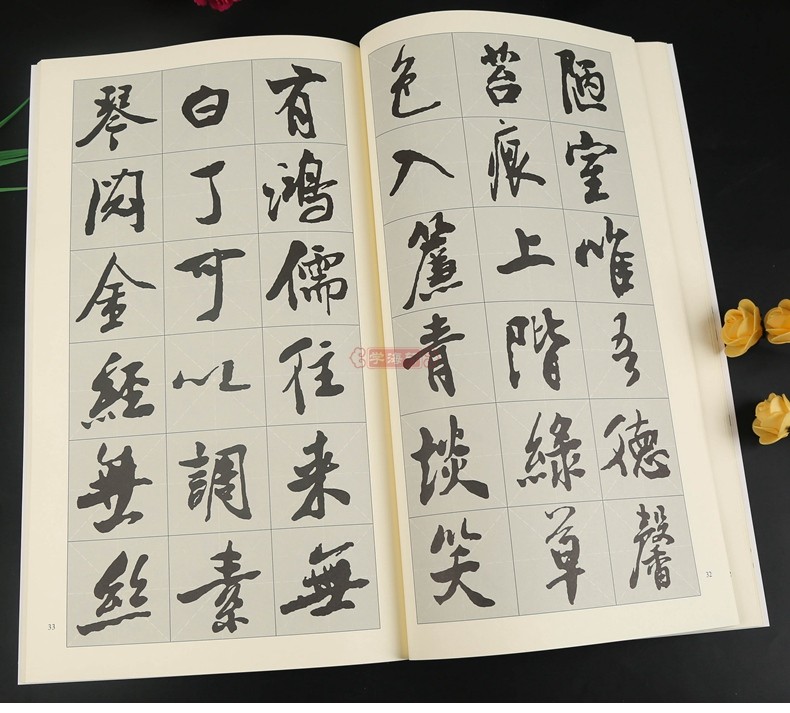 陋室惟吾德馨
苔痕上階綠草
色入簾青談笑
32
有鴻儒往来無
白丁可以調素
琴閱金經無絲
33
学海